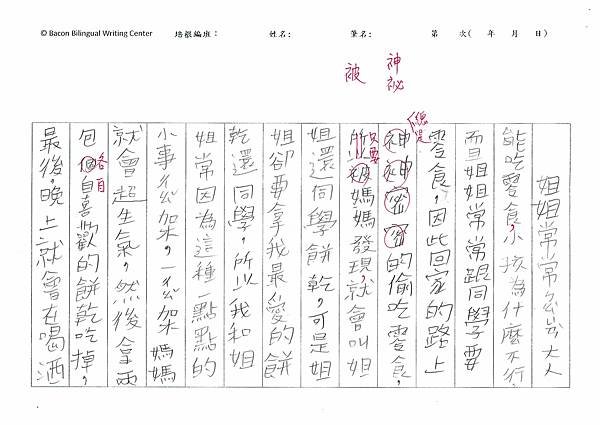 © Bacon Bilingual Writing Center 培根編班: 姓名: 筆名: 第 次( 年 月 日)
神祕
被
姐姐常常忿忿大人
能吃零食,小孩為什麼不行,
而且姐姐常常跟同學要
零食,因此回家的路上
總是
神神密密的偷吃零食,
只要
所以被媽媽發現,就會叫姐
姐還同學餅乾,可是姐
姐卻要拿我最愛的餅
乾還同學,所以我和姐
姐常因為這種一點點的
小事吵架,一吵架媽媽
就會超生氣,然後拿兩
包個自喜歡的餅乾吃掉,
各自
最後,晚上就會在喝酒